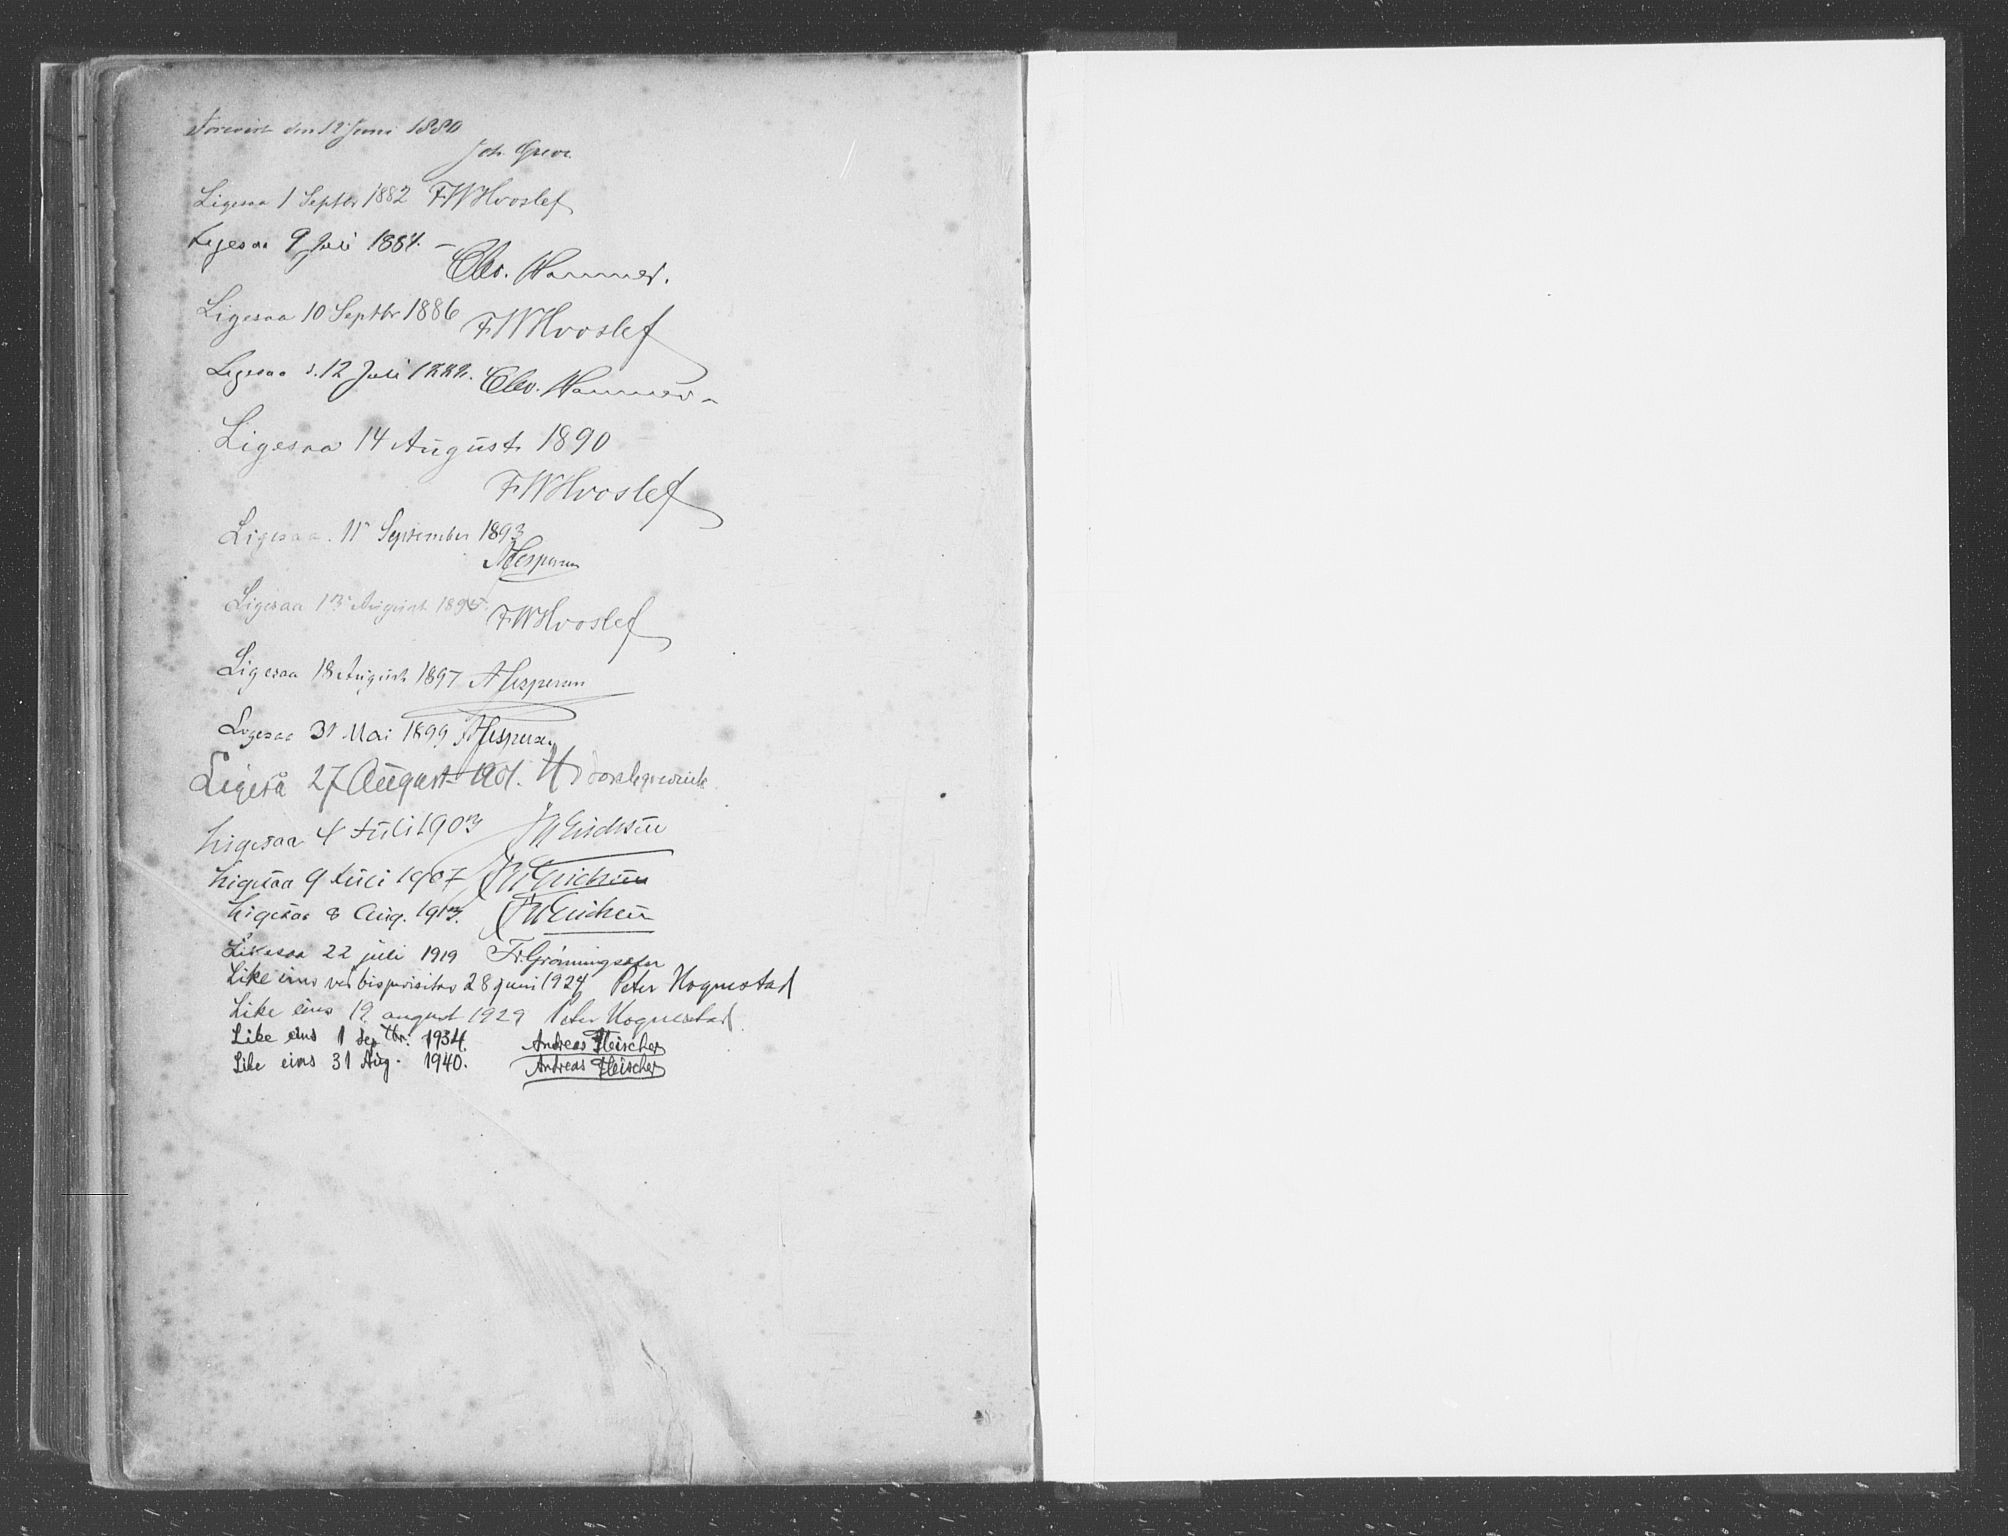 Forevist den 12 Juni 1880
Joh. Greve
Ligesaa 1 Septbr 1882 FWHvoslef
Ligesaa 9 Juli 1884. –
Chr. Hammer.
Ligesaa 10 Septbr 1886 FWHvoslef
Ligesaa d. 12 Juli 1888. Chr. Hammer –
Ligesaa 14 August 1890
FWHvoslef
Ligesaa 11 September 1893
AJespersen
Ligesaa 13 August 1895. FWHvoslef
Ligesaa 18 August 1897 AJespersen
Ligesaa 31 Mai 1899 AJespersen
Ligeså 27 August 1901.
Ligesaa 4 Juli 1903 Erichsen
Ligesaa 9 Juli 1907 Erichsen
Ligesaa 8 Aug. 1913. Erichsen
Likesaa 22 juli 1919 Fr. Grønningsæter
Like eins ved bispevisitas 28 juni 1924 Peter Hognestad
Like eins 19 august 1929 Peter Hognestad
Like eins 1 septbr. 1934. Andreas Fleischer
Like eins 31 Aug. 1940. Andreas Fleischer